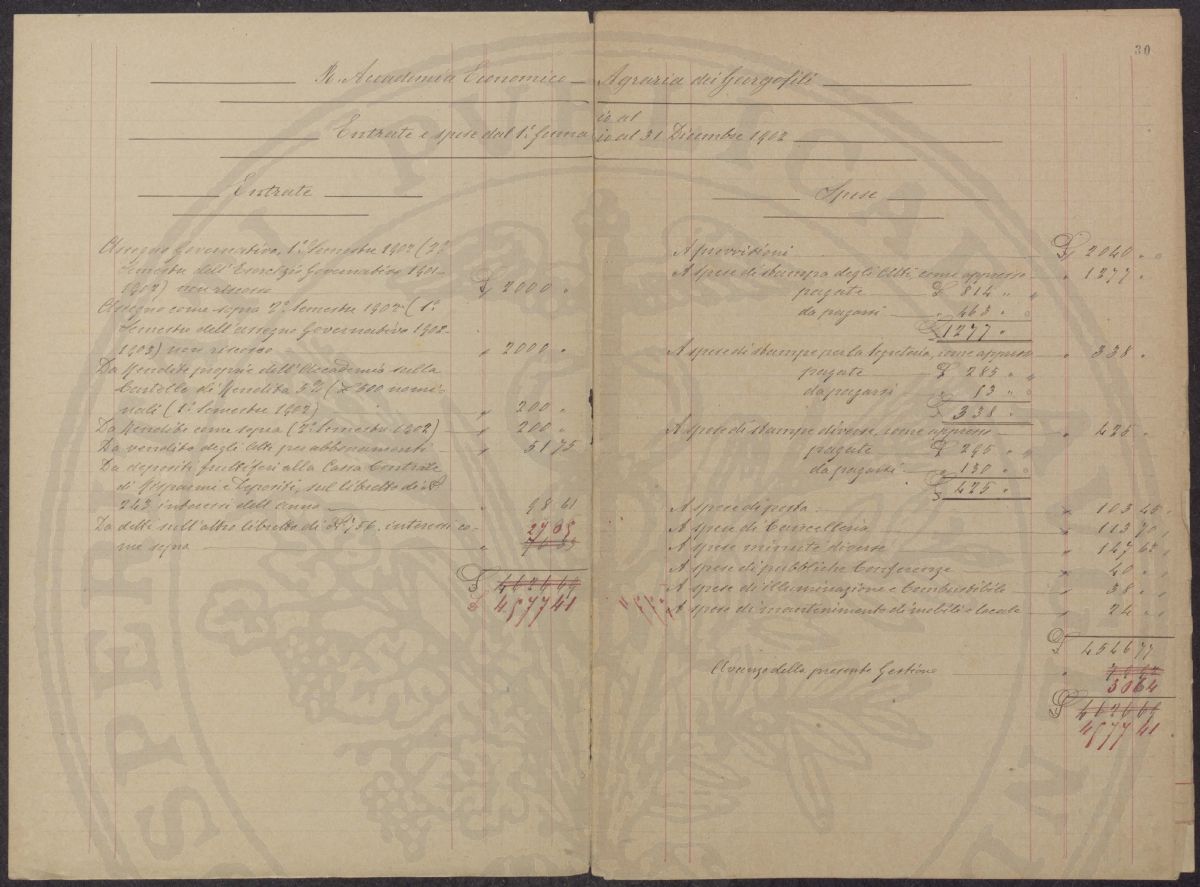 30
R. Accademia Economico Agraria dei Georgofili
io al
Entrate e spese dal 1º Genna io al 31 Dicembre 1902
Entrate
Assegno Governativo, 1º Semestre 1902 (2º
Semestre dell'Esercizio Governativo 1901-
1902) non riscosso £ 2000 "
Assegno come sopra 2º Semestre 1902 (1º
Semestre dell'assegno Governativo 1902-
1903) non riscosso " 2000 "
Da Rendite proprie dell'Accademia sulla
Cartella di Rendita 5% (£ 500 nomi-
nali (1º Semestre 1902) " 200 "
Da Rendite come sopra (2º Semestre 1902) " 200 "
Da vendita degli Atti per abbonamenti " 51 75
Da depositi fruttiferi alla Cassa Centrale
di Risparmi e Depositi, sul libretto di Nº
243 interessi dell'anno " 98 61
Da detti sull'altro libretto di Nº 56, interessi co- 27 05
me sopra "
£ 4626 69
£ 4577 41
Spese
A provvisioni £ 2040 " "
A spese di stampa degli Atti, come appresso " 1277 "
pagate £ 814 " "
da pagarsi " 463 " "
£ 1277 "
A spese di stampe per la Segreteria, come appresso " 338 "
pagate £ 285 " "
da pagarsi " 53 " "
£ 338 "
A spese di stampe diverse, come appresso " 425 "
pagate £ 295 " "
da pagarsi " 130 " "
£ 425 "
A spese di posta " 103 45 "
A spese di Cancelleria " 113 70 "
A spese minute diverse " 147 62 "
A spese di pubbliche Conferenze " 40 " "
A spese di illuminazione e Combustibile " 38 " "
A spese di mantenimento di mobili e locale " 24 " "
£ 4546 77
Avanzo della presente Gestione "
30 64
£ 4626 69
4577 41